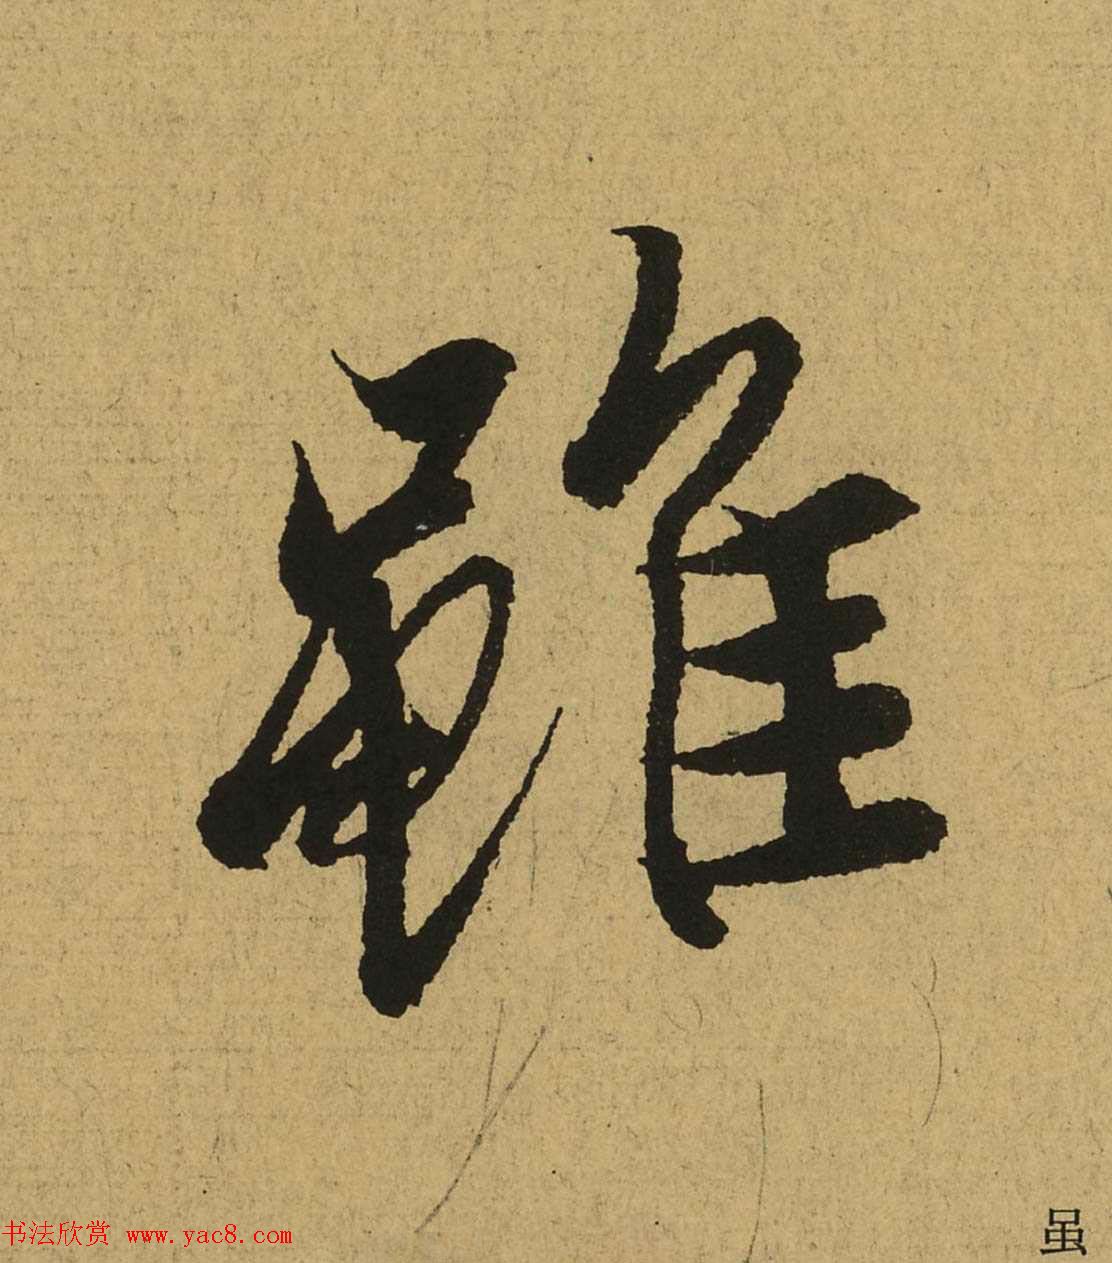 雖
书法欣赏 www.yac8.com
虽